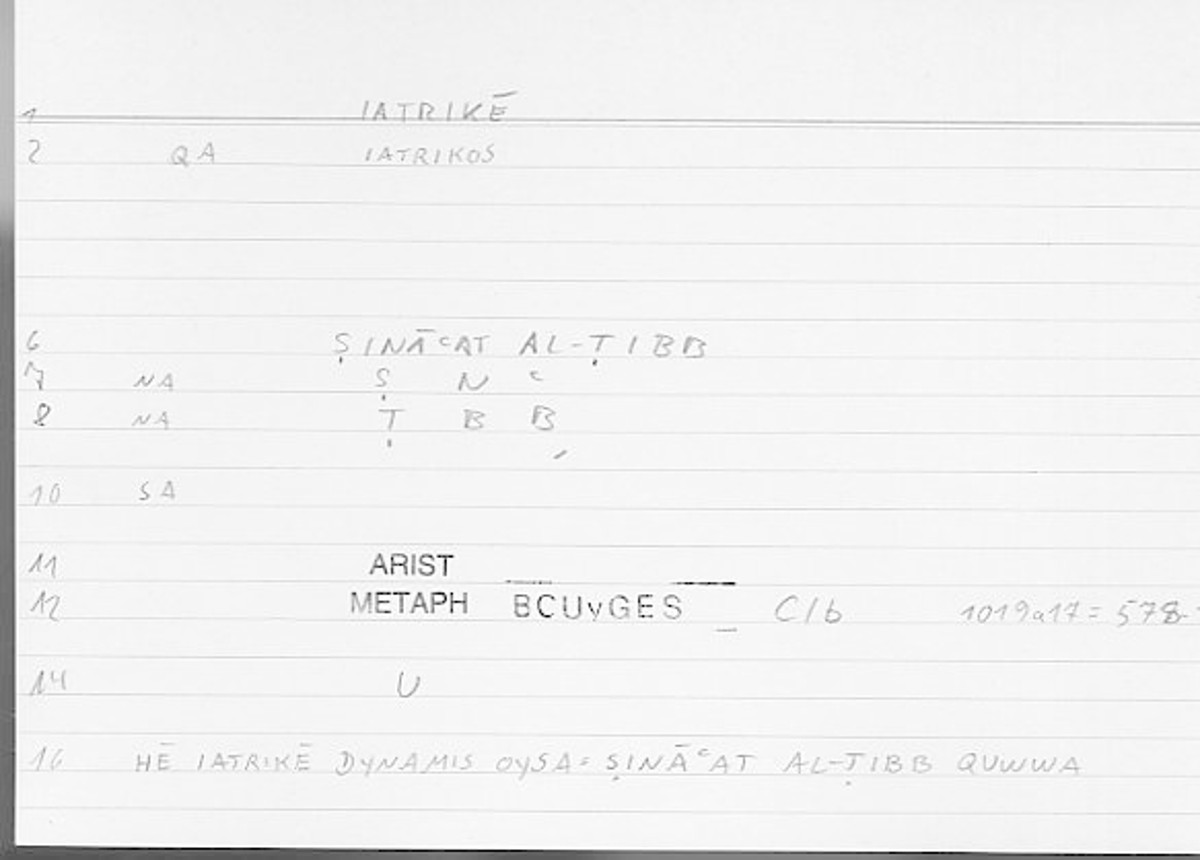 1 IATRIKĒ
2 QA IATRIKOS
6 ṢINĀʿAT AL-ṬIBB
7 NA Ṣ N ʿ
8 NA Ṭ B B
10 SA
11 ARIST
12 METAPH BCUyGES C/b 1019a17 = 578
14 U
16 HĒ IATRIKĒ DYNAMIS OYSA = ṢINĀʿAT AL-ṬIBB QUWWA